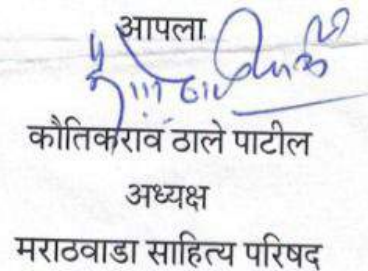 आपला
कौतिकराव ठाले पाटील
अध्यक्ष
मराठवाडा साहित्य परिषद